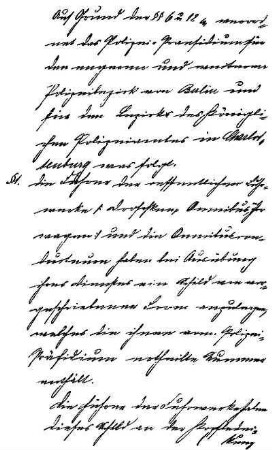 Auf Grund der §§ 6 12 verord-
net das Polizei-Praesidium für
den engeren und weiteren
Polizeibezirk von Berlin und
für den Bezirk des Königli-
chen Polizeiamtes in Charlot-
tenburg was folgt.
§1. die Führer der oeffentlichen Fuhr-
werke (Droschken, Omnibus
wagen) und die Omnibuscon-
ducteure haben bei Ausübung
ihres Dienstes ein Schild von vor-
geschriebener Form anzulegen,
welches die ihnen vom Polizei-
Präsidium ertheilte Nummer
enthält.
Die Führer der Fuhrwerke haben
dieses Schild an der Kopfbedek-
kung